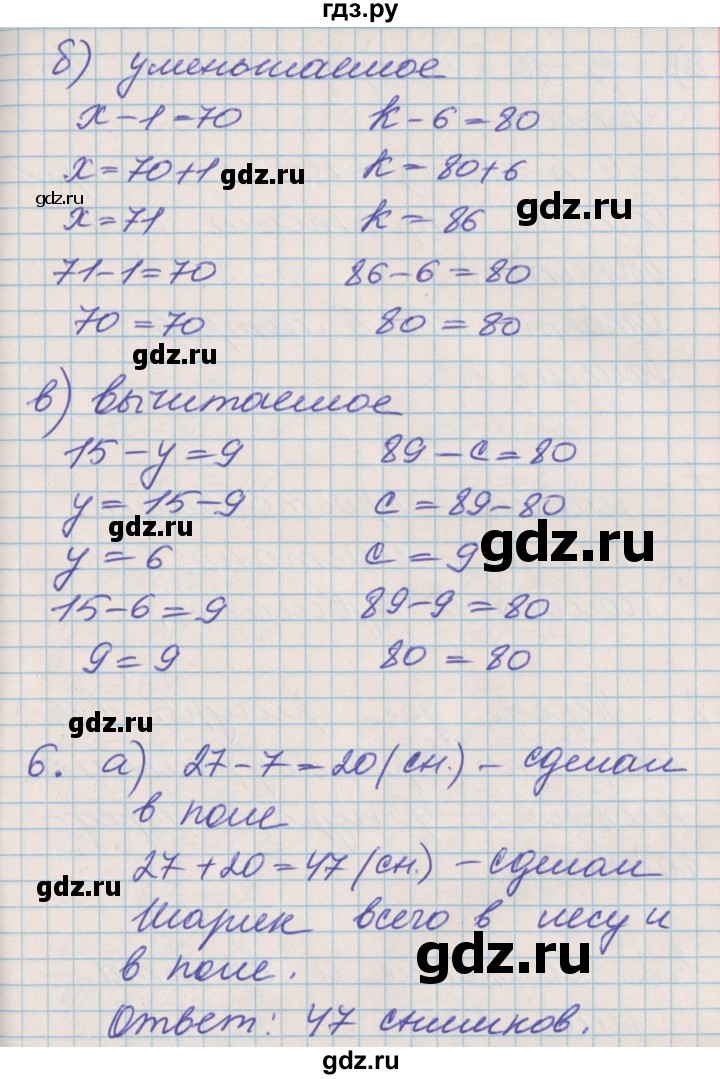 гдз.ру
б) уменьшаемое
x - 1 = 70 k - 6 = 80
x = 70 + 1 k = 80 + 6
gdz.ru
gdz.ru
gdz.ru
x = 71 k = 86
71 - 1 = 70 86 - 6 = 80
70 = 70 80 = 80
gdz.ru
в) вычитаемое
15 - y = 9 89 - c = 80
y = 15 - 9 c = 89 - 80
gdz.ru
gdz.ru
y = 6 c = 9
15 - 6 = 9 89 - 9 = 80
9 = 9 80 = 80
gdz.ru
6. а) 27 - 7 = 20 (сн.) - сделал
в поле
27 + 20 = 47 (сн.) - сделал
gdz.ru
Шарик всего в лесу и
в поле.
gdz.ru
Ответ: 47 снимков.
gdz.ru